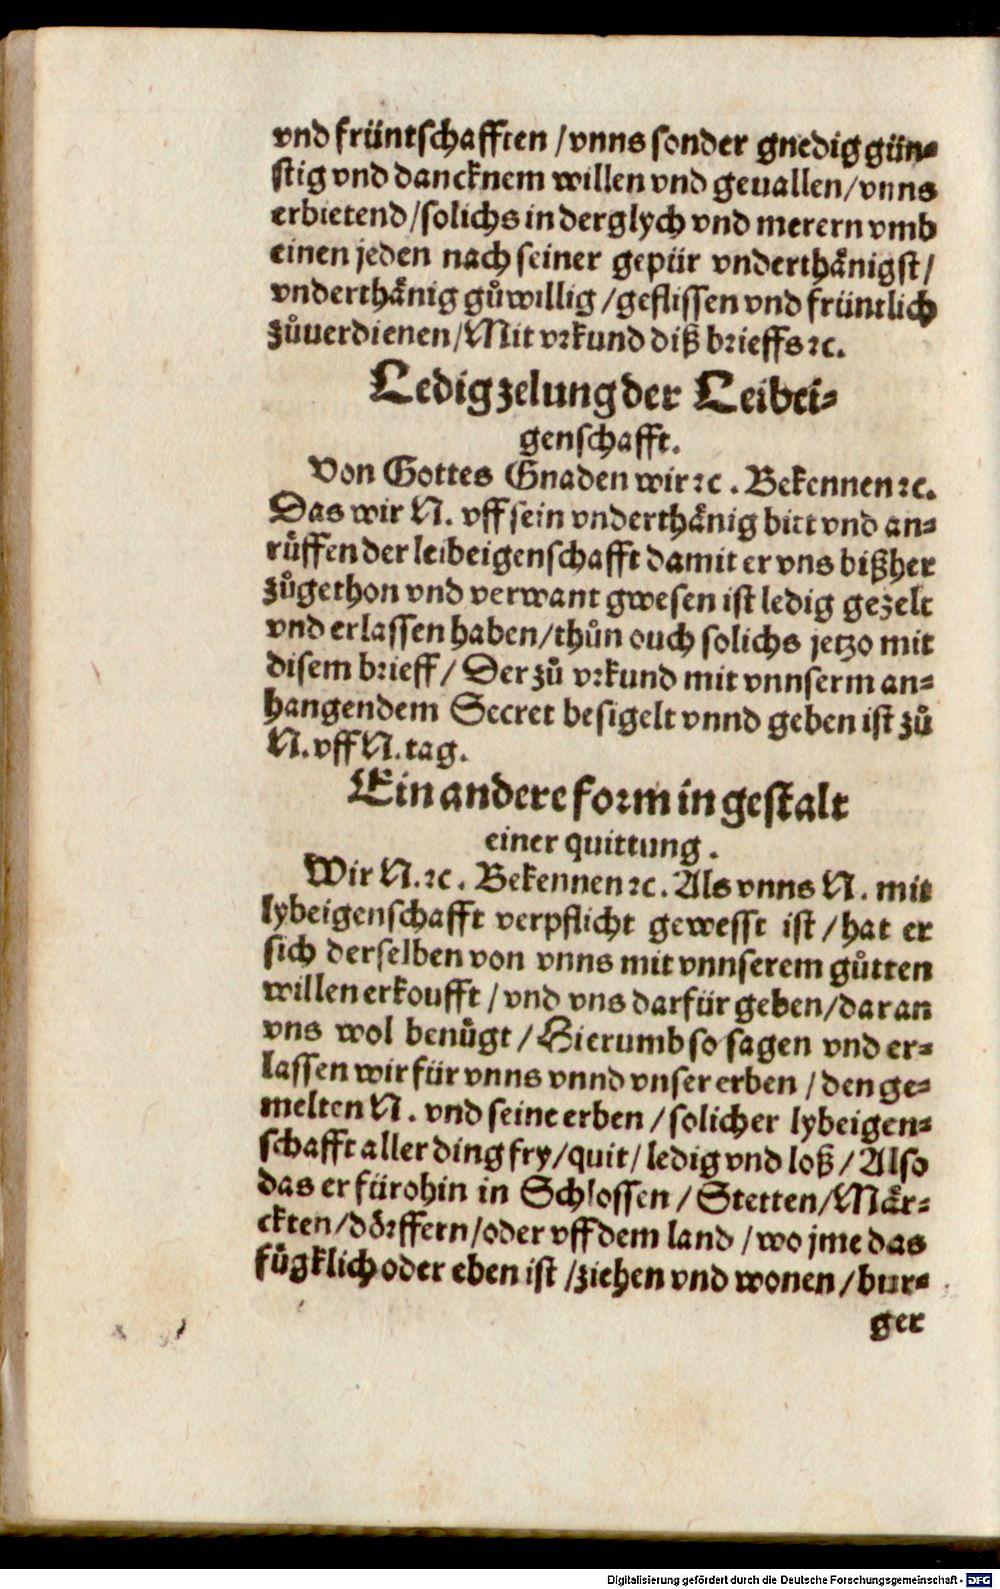 vnd früntschafften / vnns sonder gnedig gün⸗
stig vnd dancknem willen vnd geuallen / vnns
erbietend / solichs in derglych vnd merern vmb
einen jeden nach seiner gepür vnderthånigst /
vnderthånig gůwillig / geflissen vnd früntlich
zůuerdienen / Mit vrkund diß brieffs ꝛc.
Ledigzelung der Leibei⸗
genschafft.
Von Gottes Gnaden wir ꝛc. Bekennen ꝛc.
Das wir N. vff sein vnderthånig bitt vnd an⸗
růffen der leibeigenschafft damit er vns bißher
zůgethon vnd verwant gwesen ist ledig gezelt
vnd erlassen haben / thůn ouch solichs jetzo mit
disem brieff / Der zů vrkund mit vnnserm an⸗
hangendem Secret besigelt vnnd geben ist zů
N. vff N. tag.
Ein andere form in gestalt
einer quittung.
Wir N. ꝛc. Bekennen ꝛc. Als vnns N. mit
lybeigenschafft verpflicht gewesst ist / hat er
sich derselben von vnns mit vnnserem gůtten
willen erkoufft / vnd vns darfür geben / daran
vns wol benůgt / Hierumb so sagen vnd er⸗
lassen wir für vnns vnnd vnser erben / den ge⸗
melten N. vnd seine erben / solicher lybeigen⸗
schafft aller ding fry / quit / ledig vnd loß / Also
das er fürohin in Schlossen / Stetten / Mår⸗
ckten / dörffern / oder vff dem land / wo jme das
fůgklich oder eben ist / ziehen vnd wonen / bur⸗
ger
Digitalisierung gefördert durch die Deutsche Forschungsgemeinschaft - DFG